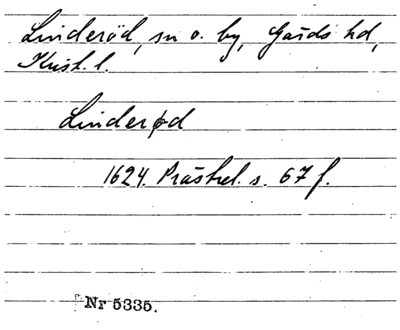 Linderöd, sn o. by, Gärds hd,
Krist. l.
Linderød
1624. Prästrel. s. 67 f.
Nr 5335.